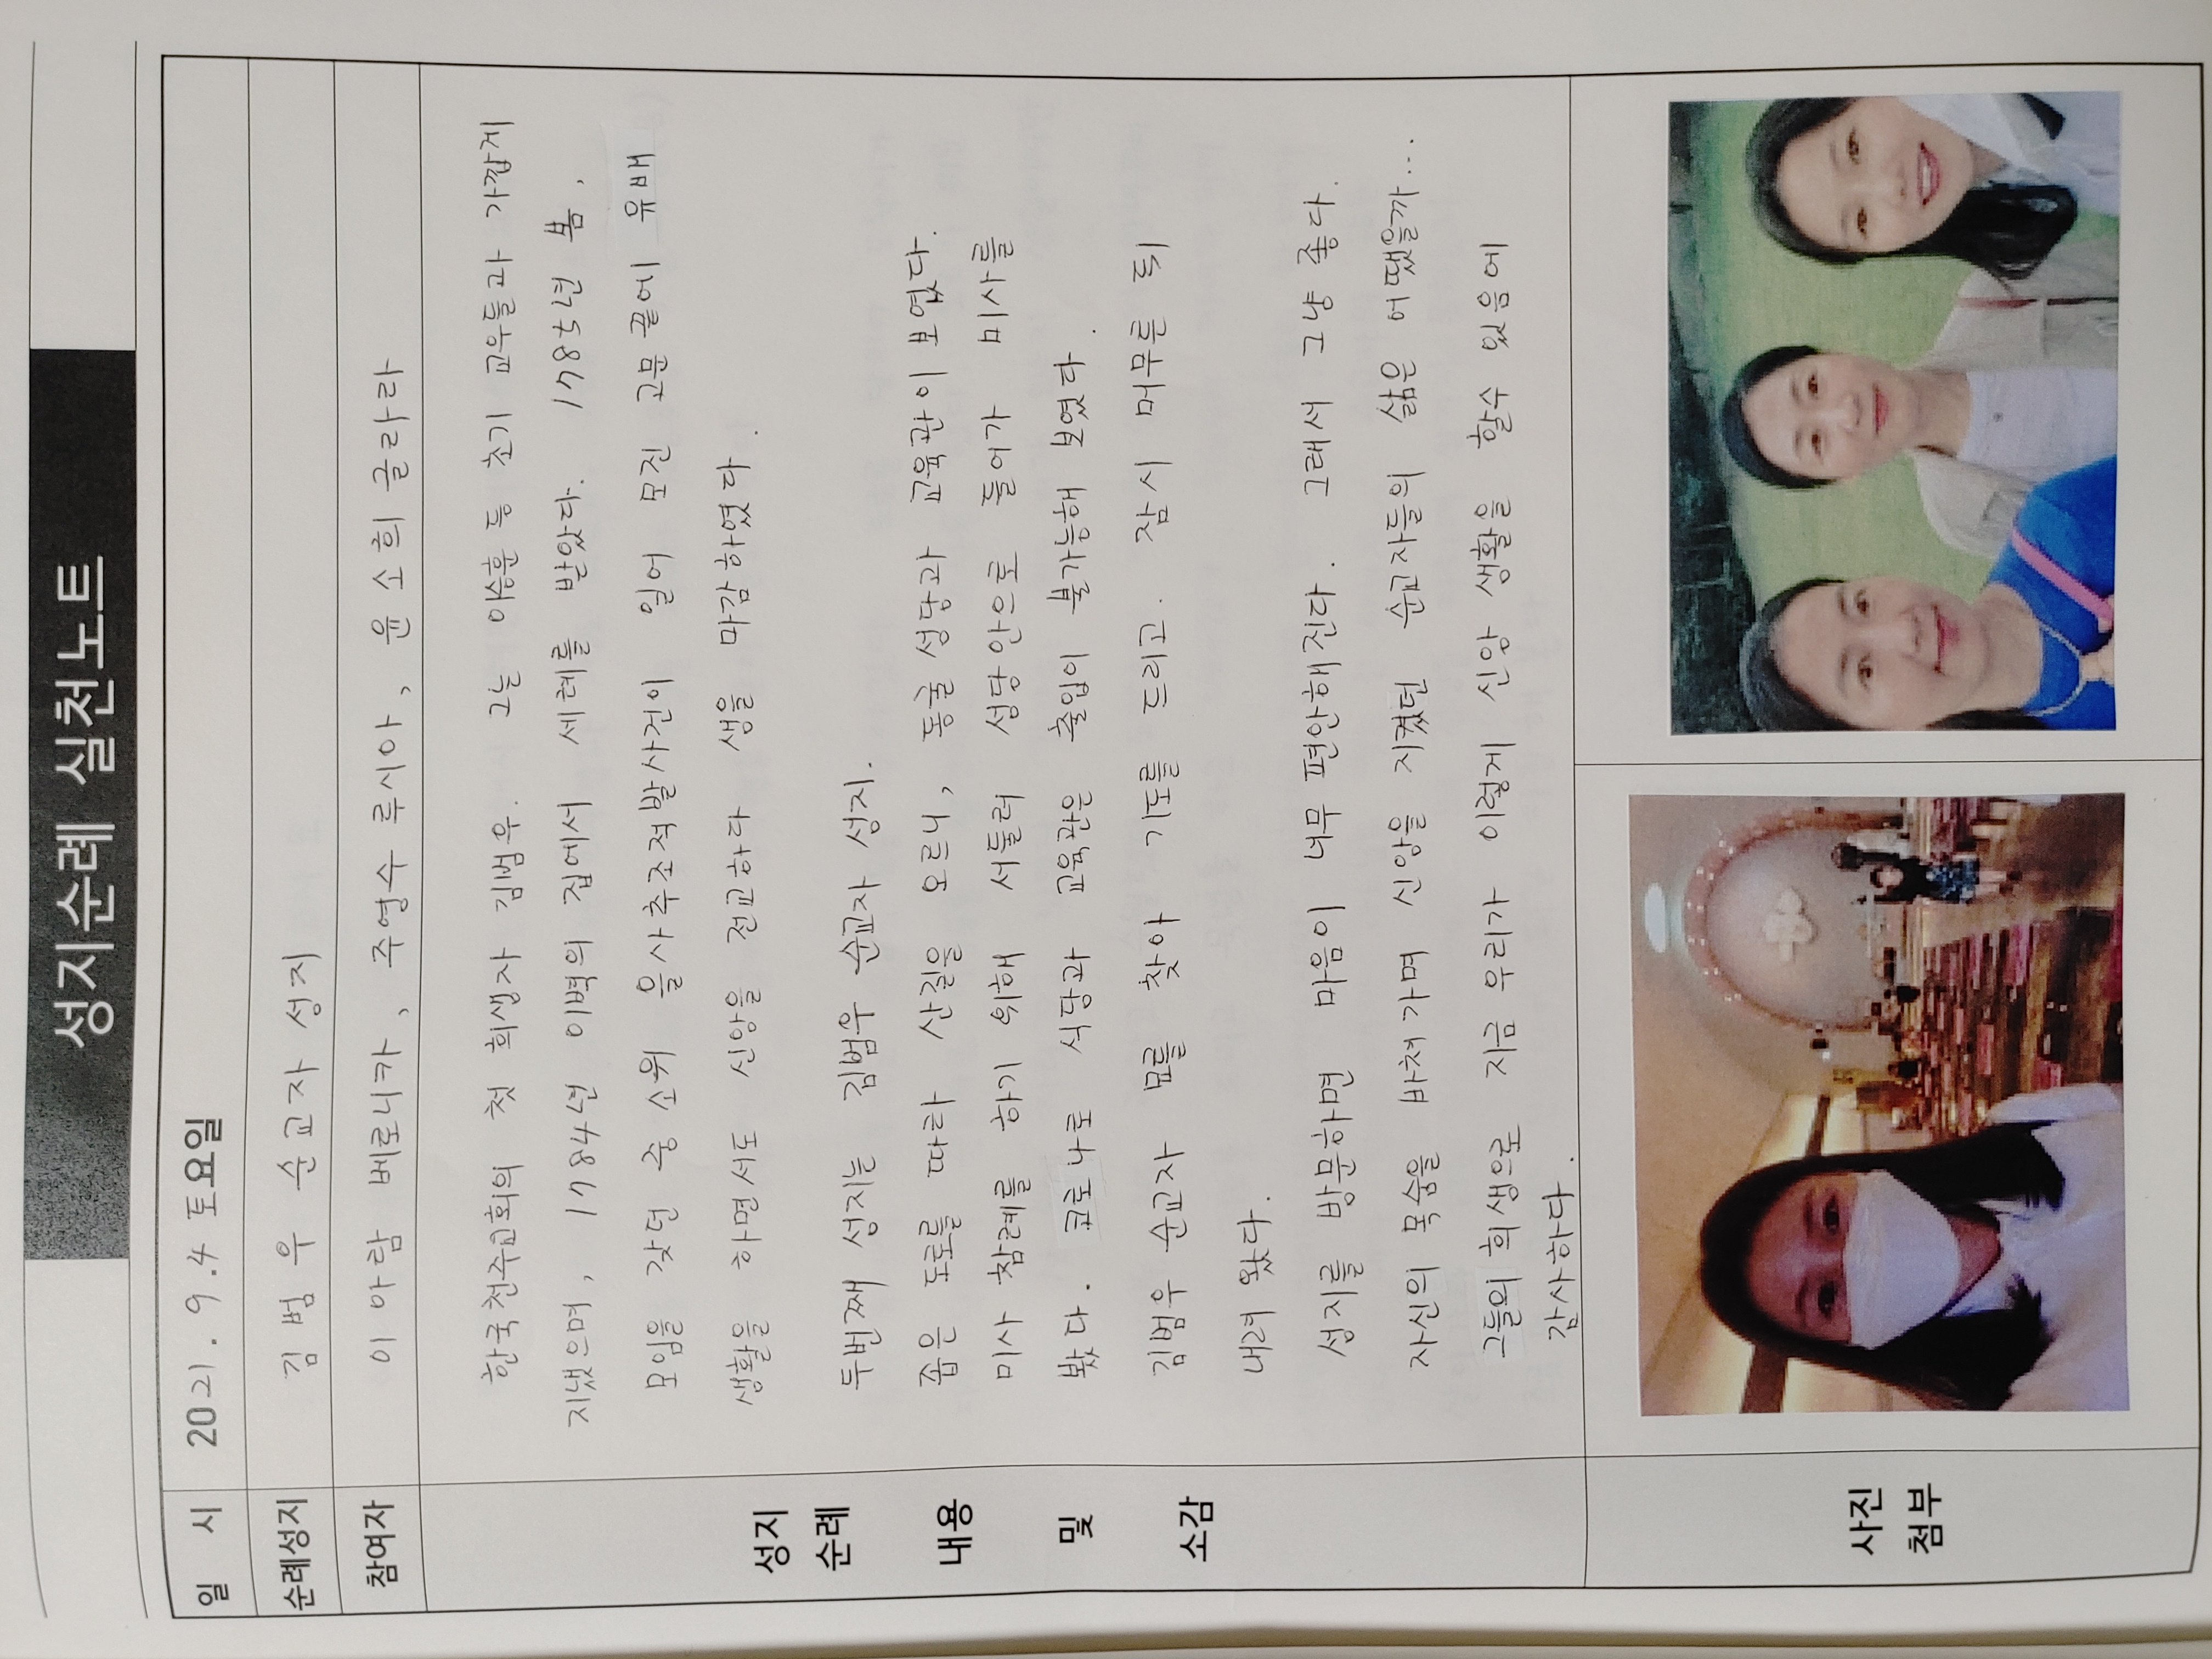 성지순례 실천노트
일 시 2021. 9.4 토요일
순례성지 김범우 순교자 성지
참여자 이아람 베로니카, 주영수 루시아, 윤소희 글라라
성지
순례
내용
및
소감
한국천주교회의 첫 희생자 김범우. 그는 이승훈 등 초기 교우들과 가깝게
지냈으며, 1784년 이벽의 집에서 세례를 받았다. 1785년 봄,
모임을 갖던 중 소위 을사추조적발사건이 일어 모진 고문끝에 유배
생활을 하면서도 신앙을 전교하다 생을 마감하였다.
두번째 성지는 김범우 순교자 성지.
좁은 도로를 따라 산길을 오르니, 동굴성당과 교육관이 보였다.
미사 참례를 하기 위해 서둘러 성당안으로 들어가 미사를
봤다. 코로나로 식당과 교육관은 출입이 불가능해 보였다.
김범우 순교자 묘를 찾아 기도를 드리고. 잠시 머무른 뒤
내려 왔다.
성지를 방문하면 마음이 너무 편안해진다. 그래서 그냥 좋다.
자신의 목숨을 바쳐가며 신앙을 지켰던 순교자들의 삶은 어땠을까...
그들의 희생으로 지금 우리가 이렇게 신앙 생활을 할수 있음에
감사하다.
사진
첨부